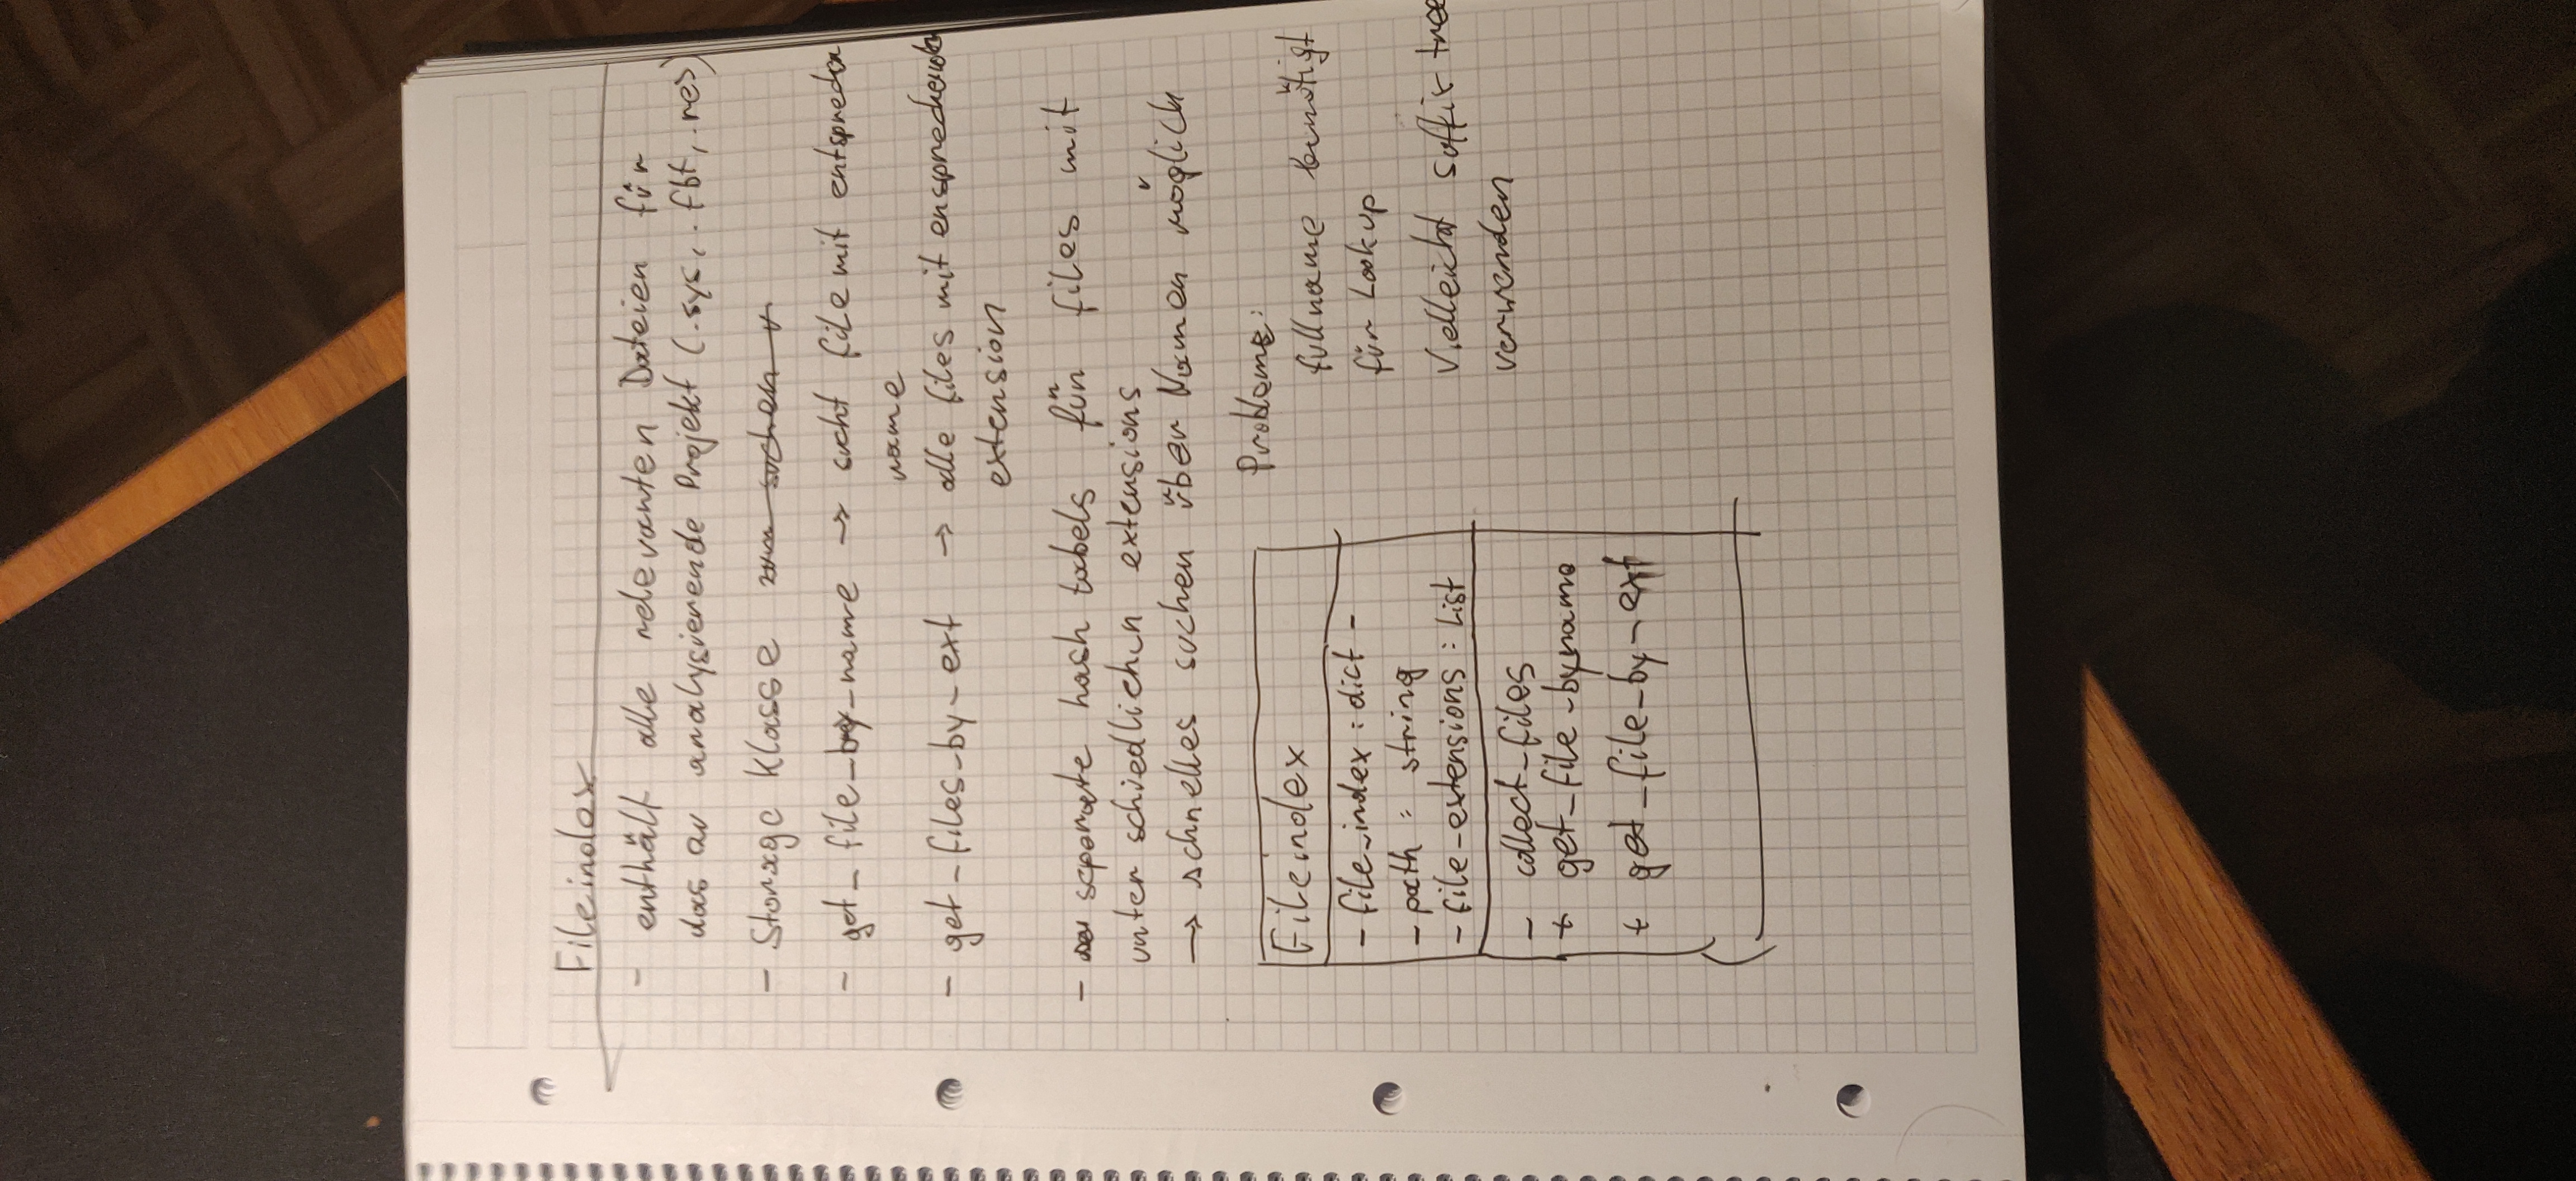 Fileindex
- enthält alle relevanten Dateien für
das zu analysierende Projekt (.sys, .fbt, .res)
- Storage Klasse zum suchen v
- get_file_by_name → sucht file mit
name
- get-files-by-ext → alle files mit
extension
- separate hash tabels für files mit
unterschiedlichen extensions
→ schnelles suchen über Namen möglich
Fileindex
- file_index : dict -
- path : string
- file-extensions : List
- collect_files
+ get_file_byname
+ get_file_by-ext
Probleme:
fullname benötigt
für Lookup
Vielleicht suffix tree
verwenden